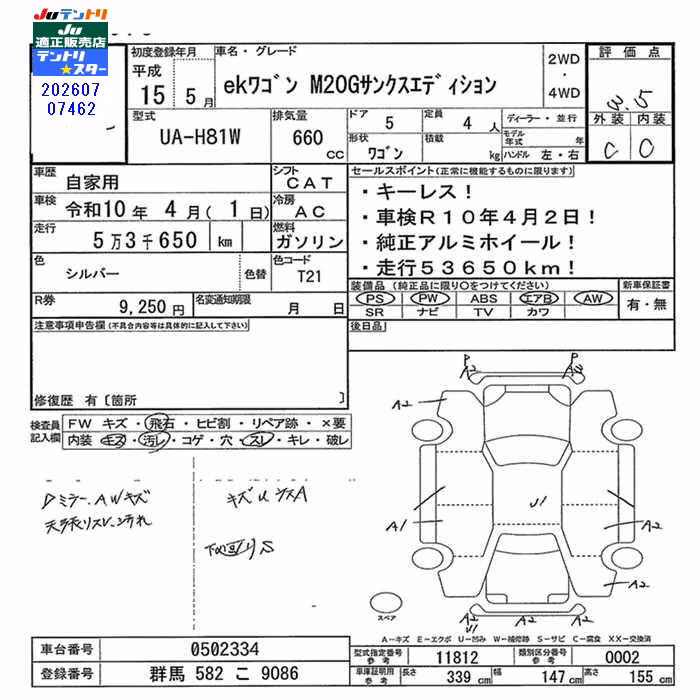 Juテントリ
Ju
適正販売店
テントリ
★スター
202607
07462
初度登録年月
平成
15 5月
車名・グレード
ekワゴン M20Gサンクスエディション
2WD
・
4WD
評価点
3.5
外装 内装
C C
型式
UA-H81W
排気量
660
cc
ドア
5
定員
4 人
形状
ワゴン
積載
kg
ディーラー・並行
モデル
年式 年
ハンドル 左・右
車歴
自家用
シフト
CAT
車検 令和10年 4月( 1日)
冷房
AC
走行
5万3千650 km
燃料
ガソリン
色
シルバー
色替
色コード
T21
R券
9,250円
名変通知期限
月 日
セールスポイント(正常に機能するものに限ります)
・キーレス!
・車検R10年4月2日!
・純正アルミホイール!
・走行53650km!
装備品 (純正品に限り○をつけてください)
PS PW ABS エアB AW
SR ナビ TV カワ
新車保証書
有・無
注意事項申告欄(不具合内容等は具体的に記入して下さい)
後日品
修復歴 有〔箇所 〕
検査員
記入欄
FW キズ・飛石・ヒビ割・リペア跡・×要
内装・キズ・汚レ・コゲ・穴・スレ・キレ・破レ
Dミラー、AWキズ
天張リスレ、汚れ
キズUウスA
下回りS
P
A2
P
A2
A2
A1
U1
A2
A2
A2
U1
A2
スペア
A-キズ E-エクボ U-凹み W-補修跡 S-サビ C-腐食 XX-交換済
車台番号 0502334
登録番号 群馬 582 こ 9086
型式指定番号
参考
11812
類別区分番号
参考
0002
車庫証明用
参考
長さ 339 cm 幅 147 cm 高さ 155 cm